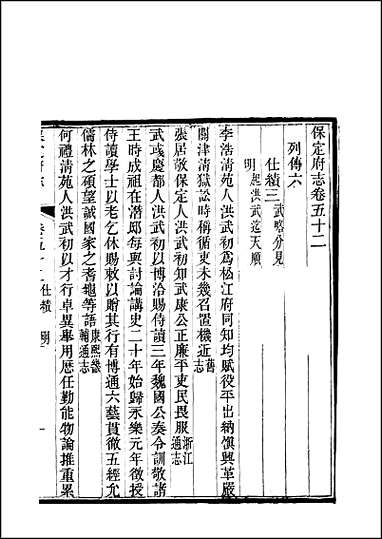 保定府志卷五十二
列傳六
仕績三 武略分見
明 起洪武迄天順
李浩清苑人洪武初爲松江府同知均賦役平出納愼興革嚴
關津清獄訟時稱循吏未幾召置機近 舊志
張居敬保定人洪武初知武康公正廉平吏民畏服 浙江通志
武彧慶都人洪武初以博洽賜侍讀三年魏國公奏令訓敬諸
王時成祖在潛邸每與討論講史二十年始歸永樂元年徵授
侍讀學士以老乞休賜敕以贈其行有博通六藝貫徹五經允
儒林之碩望誠國家之耆龜等語 康熙畿輔通志
何禮清苑人洪武初以才行卓異舉用歷任勤能物論推重累
仕績 明
一